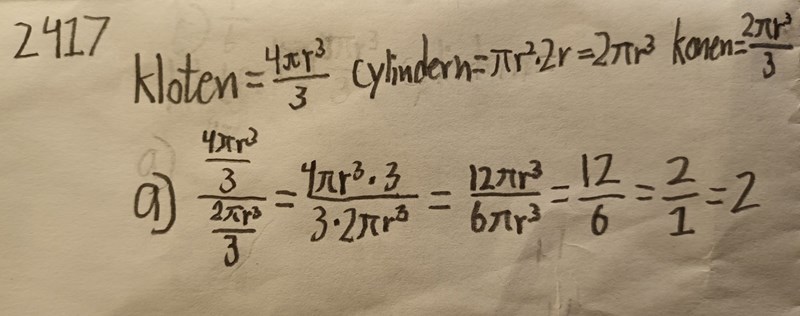 2417
kloten = 4πr³/3 cylindern = πr²·2r = 2πr³ konen = 2πr³/3
a) (4πr³/3)/(2πr³/3) = (4πr³·3)/(3·2πr³) = 12πr³/6πr³ = 12/6 = 2/1 = 2